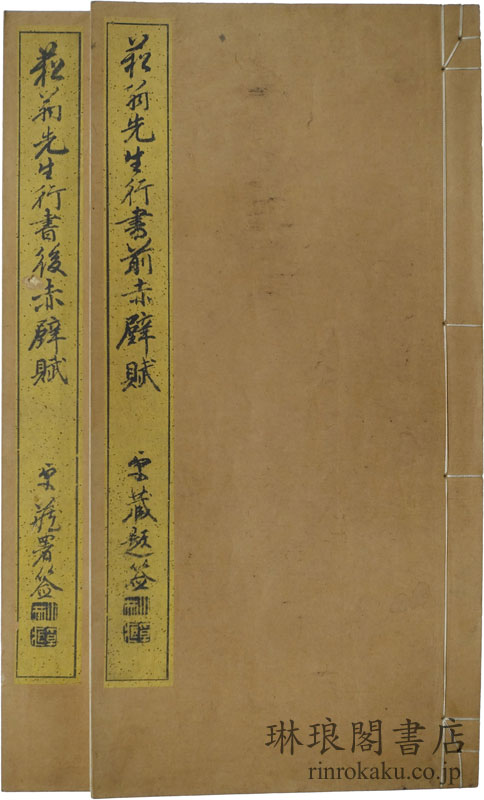 菘翁先生行書前赤壁賦
藏題签
菘翁先生行書後赤壁賦
署签
琳琅閣書店
rinrokaku.co.jp